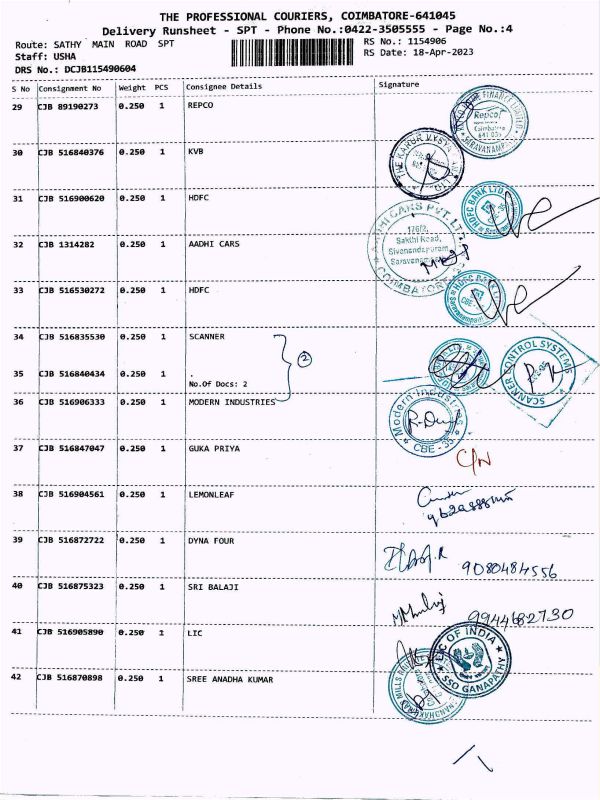 THE PROFESSIONAL COURIERS, COIMBATORE-641045
Delivery Runsheet - SPT - Phone No.:0422-3505555 - Page No.:4
Route: SATHY MAIN ROAD SPT
RS No.: 1154906
Staff: USHA
RS Date: 18-Apr-2023
DRS No.: DCJB115490604
S No Consignment No Weight PCS Consignee Details Signature
29 CJB 89190273 0.250 1 REPCO
Repco
30 CJB 516840376 0.250 1 KVB
THE KARUR VYSYA
31 CJB 516900620 0.250 1 HDFC
HDFC BANK LTD
32 CJB 1314282 0.250 1 AADHI CARS
CARS PVT. LTD.
176/2,
Sakthi Road,
Sivanandapuram,
COIMBATORE
33 CJB 516530272 0.250 1 HDFC
HDFC BANK
34 CJB 516835530 0.250 1 SCANNER
2
35 CJB 516840434 0.250 1 .
No.Of Docs: 2
SCANKER CONTROL SYSTEMS
36 CJB 516906333 0.250 1 MODERN INDUSTRIES
Modern Industries
CBE - 35
37 CJB 516847047 0.250 1 GUKA PRIYA
C/N
38 CJB 516904561 0.250 1 LEMONLEAF
39 CJB 516872722 0.250 1 DYNA FOUR
9080484556
40 CJB 516875323 0.250 1 SRI BALAJI
9944682730
41 CJB 516905890 0.250 1 LIC
LIC OF INDIA
SSO GANAPATHY
42 CJB 516870898 0.250 1 SREE ANADHA KUMAR